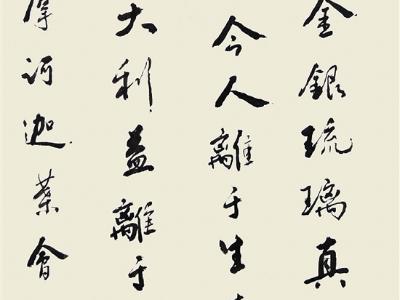 金銀琉璃真
今人離于生
大利益離于
摩訶迦葉會